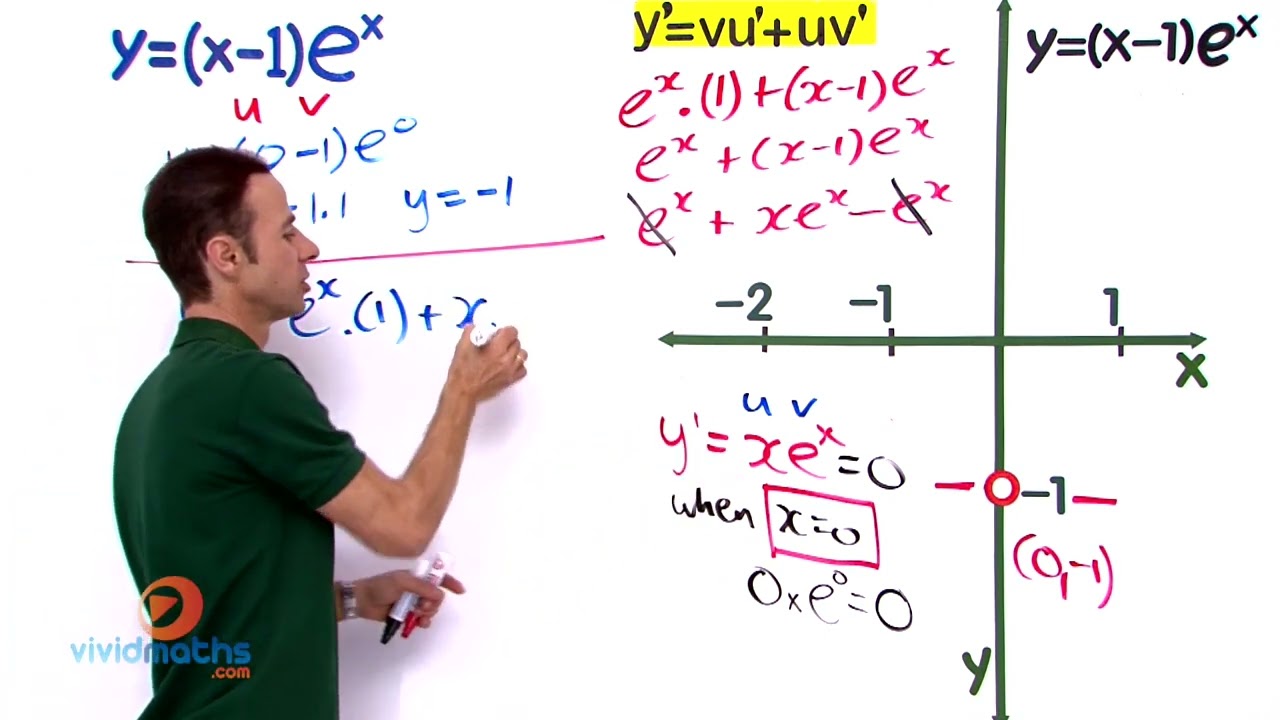 y=(x-1)eˣ
u v
(0-1)e⁰
-1.1 y=-1
eˣ.(1)+x.
y'=vu'+uv'
eˣ.(1)+(x-1)eˣ
eˣ+(x-1)eˣ
eˣ+xeˣ-eˣ
y=(x-1)eˣ
-2 -1 1
x
u v
y'=xeˣ=0
when x=0
0xe⁰=0
-1
(0,-1)
y
vividmaths
.com